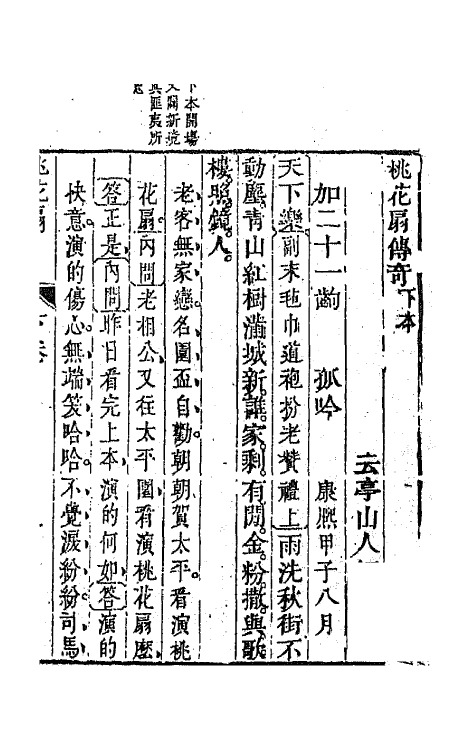 桃花扇傳奇下本
云亭山人
加二十一齣 孤吟 康熙甲子八月
天下樂副末毡巾道袍扮老贊禮上雨洗秋街不
動塵青山紅樹滿城新誰家剩有閒金粉撒與歌
樓照鏡人
老客無家戀名園盃自勸朝朝賀太平看演桃
花扇內問老相公又往太平園看演桃花扇麽
答正是內問昨日看完上本演的何如答演的
快意演的傷心無端笑哈哈不覺淚紛紛司馬
桃花扇 下卷
下本開場
又闢新境